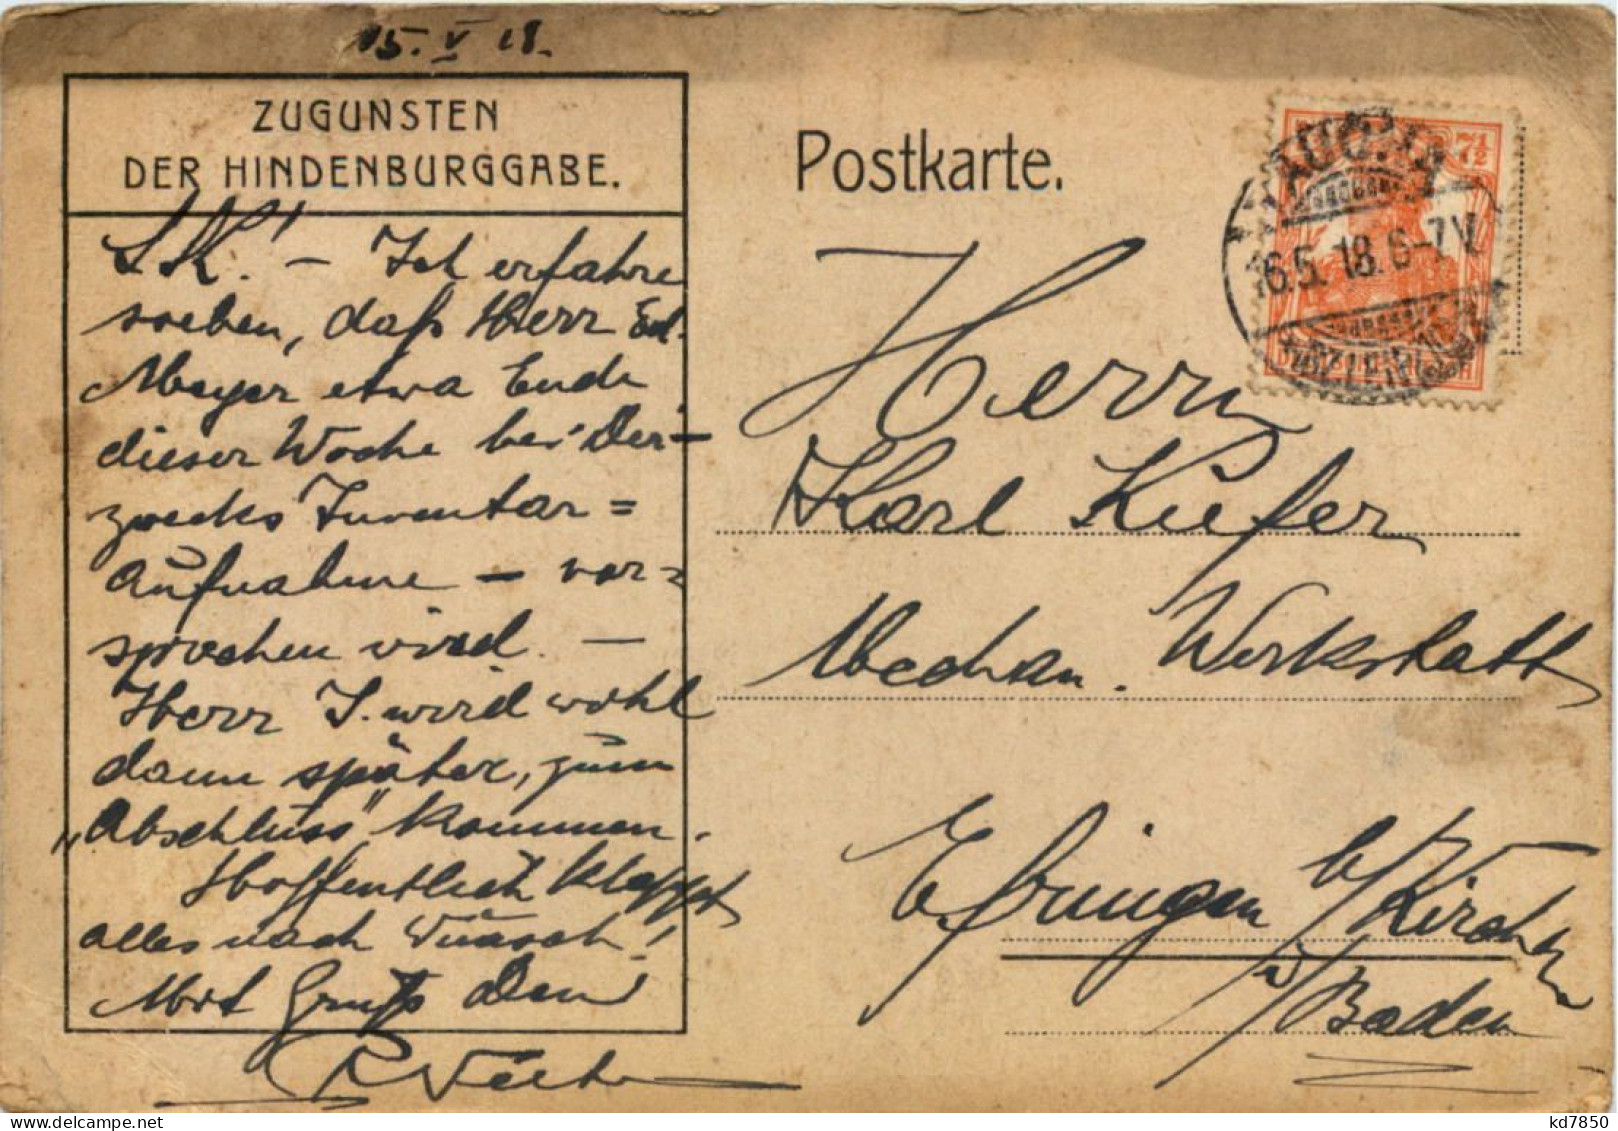 15. V 18.
ZUGUNSTEN
DER HINDENBURGGABE.
L. K! – Ich erfahre
soeben, daß Herr Ed.
Meyer etwa Ende
dieser Woche bei Dir –
zwecks Inventar=
Aufnahme – vor=
sprechen wird. –
Herr I. wird wohl
dann später, zum
„Abschluss" kommen.
Hoffentlich klappt
alles nach Wunsch!
Mit Gruß Dein
Postkarte.
7½
16.5.18. 6-7V.
Herrn
Karl Kiefer
Mechan. Werkstatt
Efringen b/Kirchen
i/Baden
kd7850